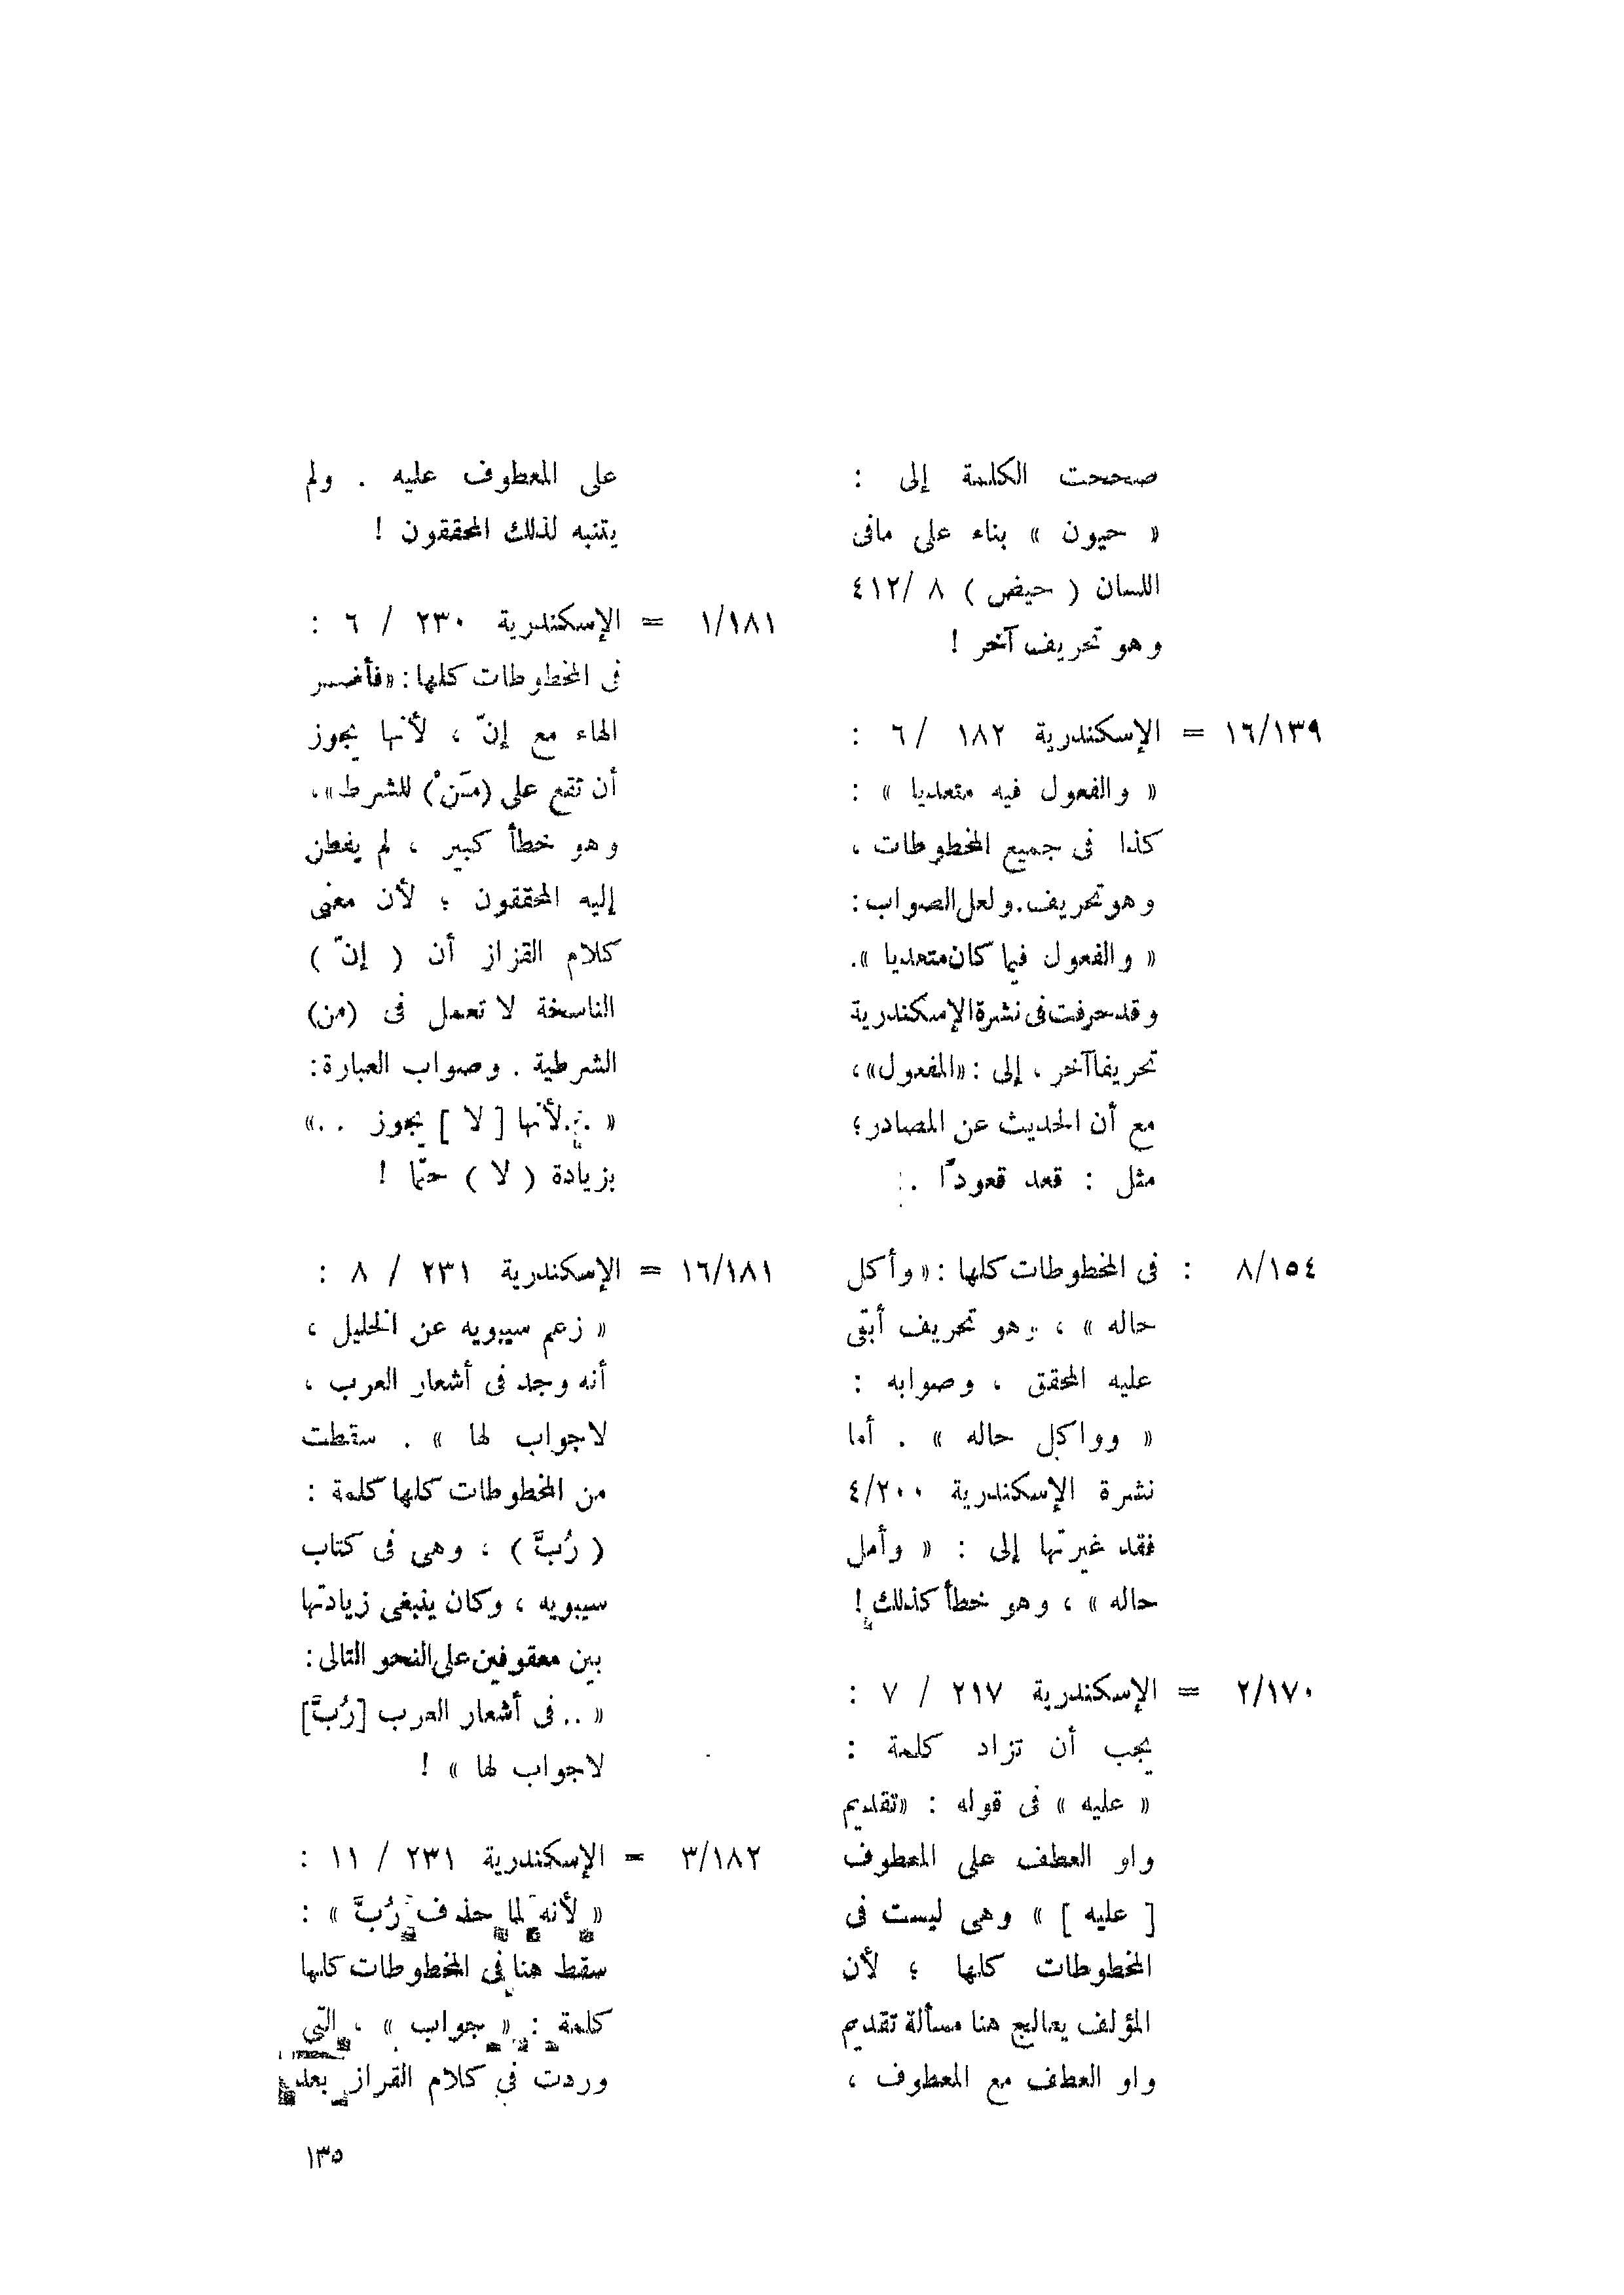 صححت الكلمة إلى :
« حيون » بناء على مافى
اللسان ( حيض ) ٨ /٤١٢
وهو تحريف آخر !
١٦/١٣٩ = الإسكندرية ١٨٢ /٦ :
« والفعول فيه متعديا » :
كذا فى جميع المخطوطات ،
وهو تحريف . ولعل الصواب :
« والفعول فيما كان متعديا » .
وقد حرفت فى نشرة الإسكندرية
تحريفا آخر ، إلى : «المفعول» ،
مع أن الحديث عن المصادر ؛
مثل : قعد قعودًا .
٨/١٥٤ : فى المخطوطات كلها : « وأكل
حاله » ، وهو تحريف أبقى
عليه المحقق ، وصوابه :
« وواكل حاله » . أما
نشرة الإسكندرية ٤/٢٠٠
فقد غيرتها إلى : « وأمل
حاله » ، وهو خطأ كذلك !
٢/١٧٠ = الإسكندرية ٢١٧ / ٧ :
يجب أن تزاد كلمة :
« عليه » فى قوله : «تقديم
واو العطف على المعطوف
[ عليه ] » وهى ليست فى
المخطوطات كلها ؛ لأن
المؤلف يعالج هنا مسألة تقديم
واو العطف مع المعطوف ،
على المعطوف عليه . ولم
يتنبه لذلك المحققون !
١/١٨١ = الإسكندرية ٢٣٠ / ٦ :
فى المخطوطات كلها : «فأضمر
الهاء مع إنّ ، لأنها يجوز
أن تقع على (مَنْ) للشرط» .
وهو خطأ كبير ، لم يفطن
إليه المحققون ؛ لأن معنى
كلام القزاز أن ( إنّ )
الناسخة لا تعمل فى (من)
الشرطية . وصواب العبارة :
« ..لأنها [ لا ] يجوز ..»
بزيادة ( لا ) حتما !
١٦/١٨١ = الإسكندرية ٢٣١ / ٨ :
« زعم سيبويه عن الخليل ،
أنه وجد فى أشعار العرب ،
لاجواب لها » . سقطت
من المخطوطات كلها كلمة :
( رُبَّ ) ، وهى فى كتاب
سيبويه ، وكان ينبغى زيادتها
بين معقوفين على النحو التالى :
« .. فى أشعار العرب [رُبَّ]
لاجواب لها » !
٣/١٨٢ = الإسكندرية ٢٣١ / ١١ :
« لأنه لما حذف رُبَّ » :
سقط هنا فى المخطوطات كلها
كلمة : « جواب » ، التى
وردت فى كلام القزاز بعد
١٣٥